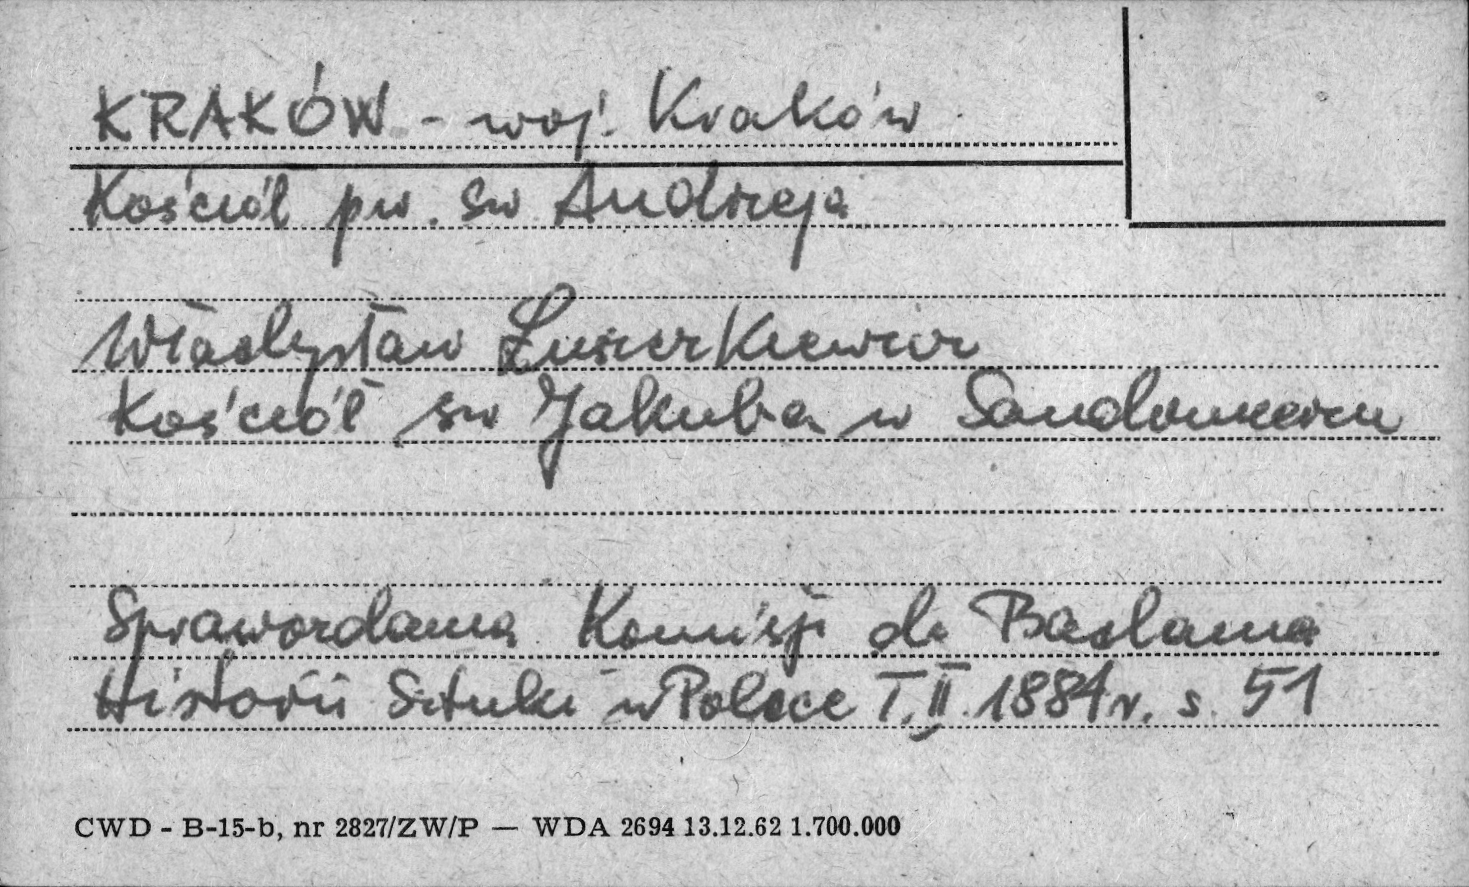 KRAKÓW - woj. Kraków
Kościół pw. św. Andrzeja
Władysław Łuszczkiewicz
Kościół św Jakuba w Sandomierzu
Sprawozdania Komisji do Badania
Historii Sztuki w Polsce T.II. 1884r. s. 51
CWD - B-15-b, nr 2827/ZW/P — WDA 2694 13.12.62 1.700.000